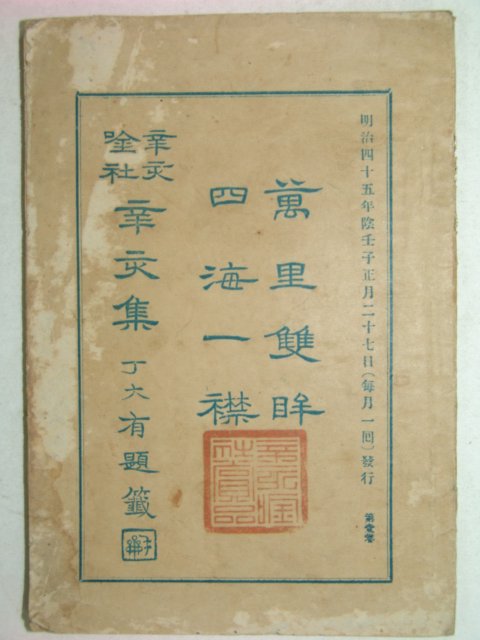 明治四十五年陰壬子正月二十七日(每月一回)發行
第壹卷
萬里雙眸
四海一襟
辛亥
唫社
辛亥集
丁大有題籤